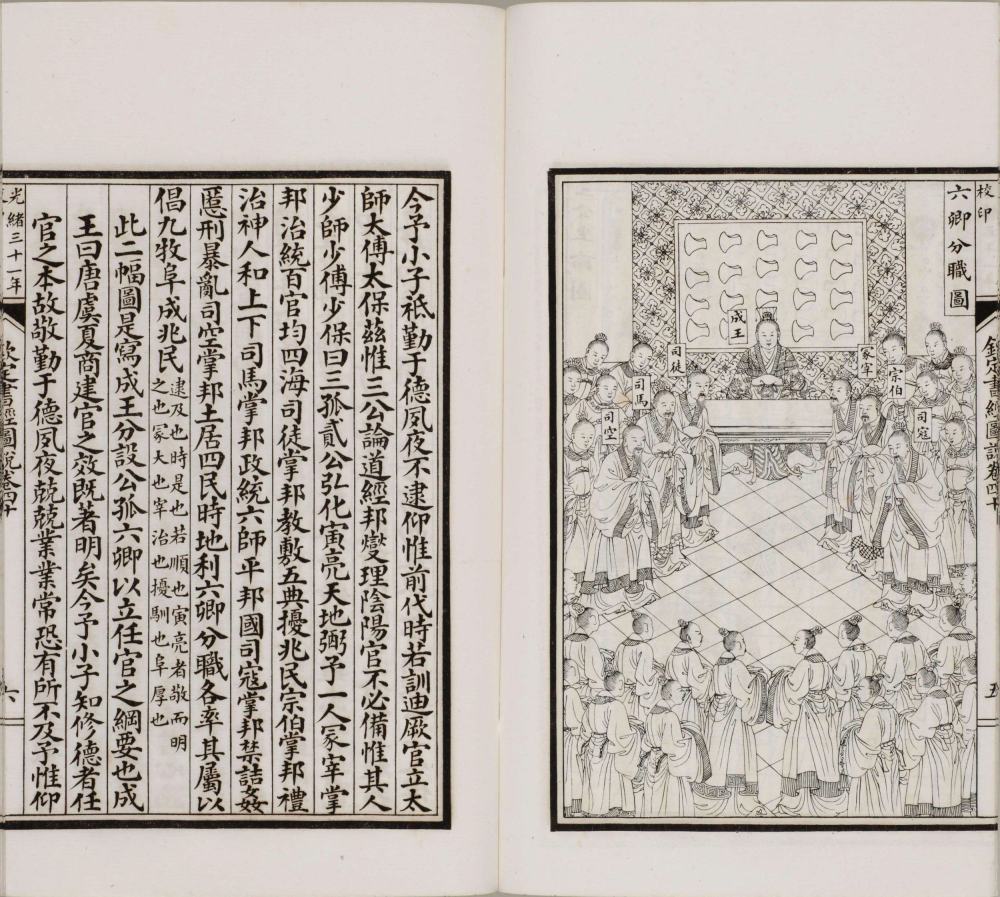 校印
六卿分職圖
欽定書經圖說卷四十
五
冢宰
宗伯
司寇
成王
司徒
司馬
司空
今予小子祗勤于德夙夜不逮仰惟前代時若訓迪厥官立太
師太傅太保茲惟三公論道經邦燮理陰陽官不必備惟其人
少師少傅少保曰三孤貳公弘化寅亮天地弼予一人冢宰掌
邦治統百官均四海司徒掌邦教敷五典擾兆民宗伯掌邦禮
治神人和上下司馬掌邦政統六師平邦國司寇掌邦禁詰姦
慝刑暴亂司空掌邦土居四民時地利六卿分職各率其屬以
倡九牧阜成兆民
逮及也時是也若順也寅亮者敬而明
之也冢大也宰治也擾馴也阜厚也
此二幅圖是寫成王分設公孤六卿以立任官之綱要也成
王曰唐虞夏商建官之效既著明矣今予小子知修德者任
官之本故敬勤于德夙夜兢兢業業常恐有所不及予惟仰
光緒三十一年
欽定書經圖說卷四十
六